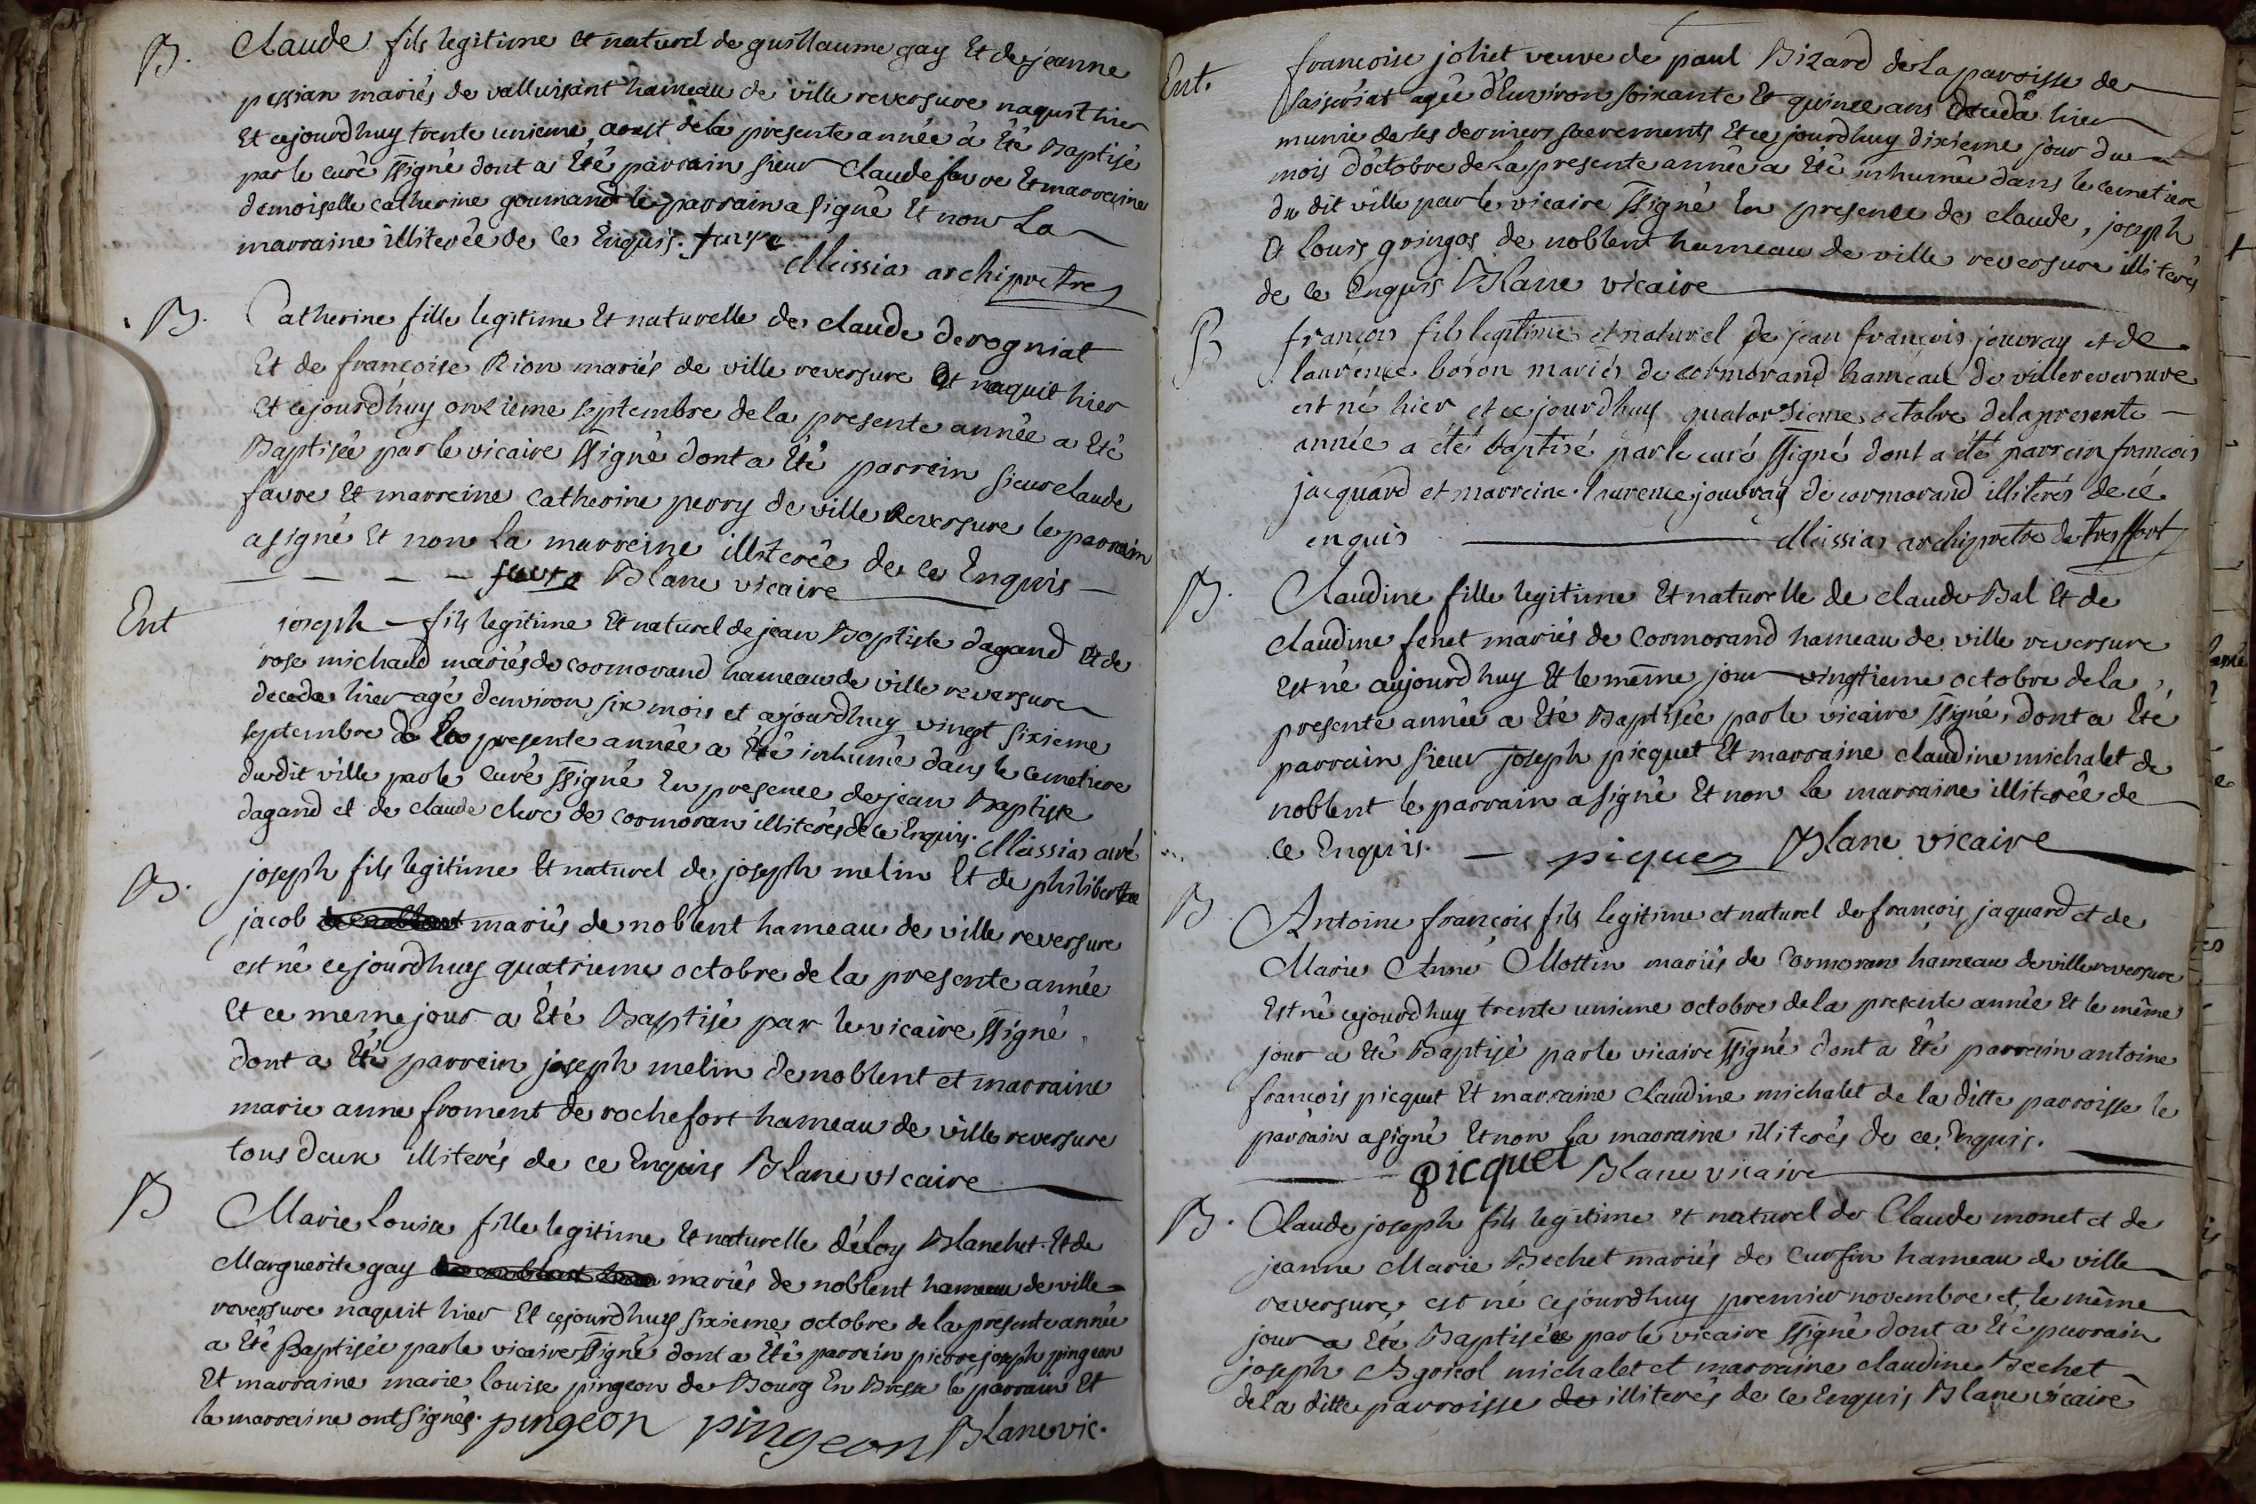 B. Claude fils legitime et naturel de guillaume gay Et de jeanne
pessian mariés de valluisant hameau de ville reversure naquit hier
Et cejourdhuy trente unieme aoust de la presente année à Eté Baptisé
par le curé ssigné dont a Eté parrain sieur Claude favre Et marreine
demoiselle catherine gourmand le parrain a signé Et non La
marraine illiterée de ce Enquis. favre
Meissias archipretre
B. Catherine fille legitime Et naturelle de claude derogniat
Et de françoise Rion mariés de ville reversure Et naquit hier
Et cejourdhuy onzieme septembre de la presente année a Eté
Baptisée par le vicaire ssigné dont a Eté parrein sieur claude
favre Et marreine catherine perry de ville Reversure le parrein
a signé Et non La marreine illiterée de ce Enquis
favre Blanc vicaire
Ent joseph fils legitime Et naturel de jean Baptiste dagand Et de
rose michaud mariés de cormorand hameau de ville reversure
deceda hier agé denviron six mois et cejourdhuy vingt sixieme
septembre de La presente année a Eté inhumé dans le cemetiere
dudit ville par le Curé ssigné En presence de jean Baptiste
dagand et de claude clerc de cormoran illiterés de ce Enquis. Meissias curé
B. joseph fils legitime Et naturel de joseph melin Et de philiberthe
jacob mariés de noblent hameau de ville reversure
est né cejourdhuy quatrieme octobre de la presente année
Et ce meme jour a Eté Baptisé par le vicaire ssigné
dont a Eté parrein joseph melin de noblent et marraine
marie anne froment de rochefort hameau de ville reversure
tous deux illiterés de ce Enquis Blanc vicaire
B Marie Louise fille legitime Et naturelle d'éloy Blanchet Et de
Marguerite gay mariés de noblent hameau de ville
reversure naquit hier Et cejourdhuy sixieme octobre de la presente année
a Eté Baptisée par le vicaire ssigné dont a Eté parrein pierre joseph pingeon
Et marraine marie louise pingeon de Bourg En Bresse le parrain Et
la marreine ont signés. pingeon pingeon Blanc vic.
Ent. francoise joliet veuve de paul Bizard de La paroisse de
saiseriat agée d'Environ soixante Et quinze ans deceda hier
munie de ses derniers sacrements Et ce jourdhuy dixieme jour du
mois d'octobre de La presente année a Eté inhumée dans le cemetiere
du dit ville par le vicaire ssigné En presence de claude, joseph
Et Louis gringos de noblent hameau de ville reversure illiterés
de ce Enquis Blanc vicaire
B françois fils legitime et naturel de jean françois jouvray et de
laurence boron mariés de cormorand hameau de ville reversure
est né hier et ce jourdhuy quatorsieme octobre de la presente
année a été baptisé par le curé ssigné dont a été parrein francois
jacquard et marreine laurence jouvray de cormorand illiterés de cé
enquis Meissias archipretre de treffort
B. Claudine fille legitime Et naturelle de claude Bal Et de
claudine fenet mariés de Cormorand hameau de ville reversure
Est né aujourdhuy Et le même jour vingtieme octobre de la
presente année a Eté Baptisée par le vicaire ssigné, dont a Eté
parrain sieur joseph picquet Et marraine claudine michalet de
noblent le parrain a signé Et non la marraine illiterée de
ce Enquis. piquet Blanc vicaire
B Antoine françois fils legitime et naturel de françois jaquard et de
Marie Anne Mottin mariés de Cormoran hameau de ville reversure
Est né cejourdhuy trente unieme octobre de la presente année Et le même
jour a Eté Baptisé par le vicaire ssigné dont a Eté parrein antoine
françois picquet Et marraine Claudine michalet de la ditte parroisse le
parrain a signé Et non La marraine illiterés de ce Enquis.
picquet Blanc vicaire
B. Claude joseph fils legitime et naturel de Claude monet et de
jeanne Marie Bechet mariés de Cursin hameau de ville
reversure est né cejourdhuy premier novembre et le même
jour a Eté Baptisée par le vicaire ssigné dont a Eté parrain
joseph michalet et marraine claudine Bechet
de la ditte parroisse de illiterés de ce Enquis Blanc vicaire